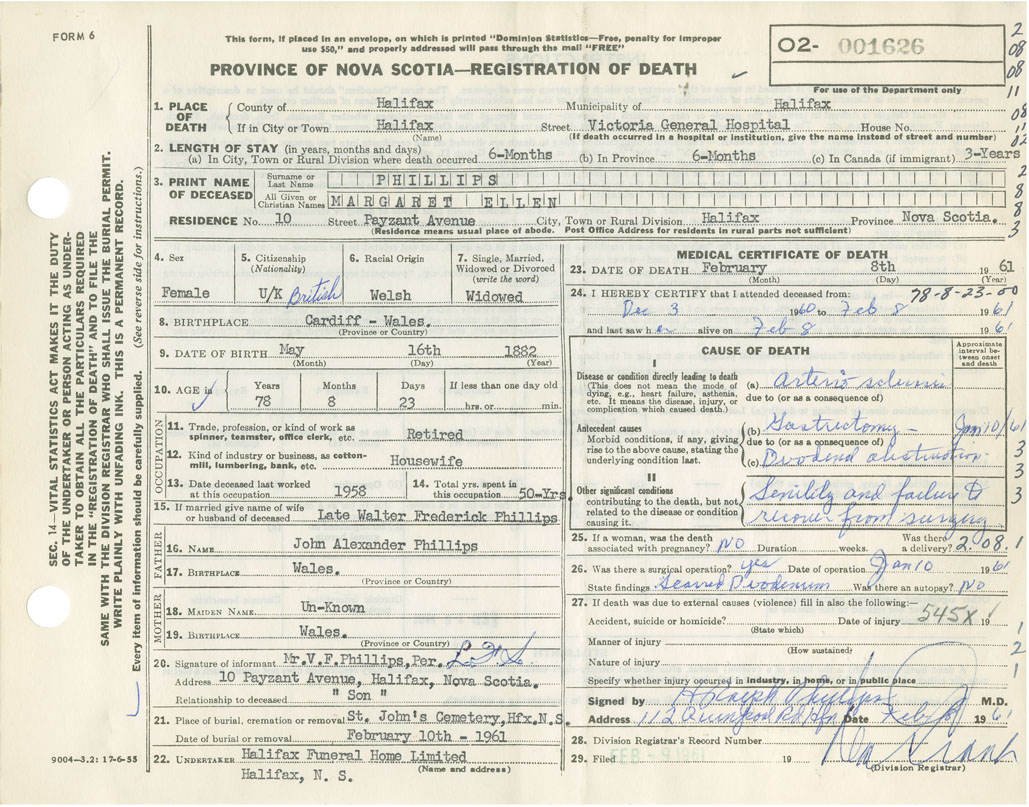 FORM 6
This form, if placed in an envelope, on which is printed "Dominion Statistics—Free, penalty for improper
use $50," and properly addressed will pass through the mail "FREE"
PROVINCE OF NOVA SCOTIA—REGISTRATION OF DEATH
O2- 001626
For use of the Department only
2
08
08
11
08
11
02
2
8
8
3
SEC. 14—VITAL STATISTICS ACT MAKES IT THE DUTY
OF THE UNDERTAKER OR PERSON ACTING AS UNDER-
TAKER TO OBTAIN ALL THE PARTICULARS REQUIRED
IN THE "REGISTRATION OF DEATH" AND TO FILE THE
SAME WITH THE DIVISION REGISTRAR WHO SHALL ISSUE THE BURIAL PERMIT.
WRITE PLAINLY WITH UNFADING INK. THIS IS A PERMANENT RECORD.
Every item of information should be carefully supplied. (See reverse side for instructions.)
1. PLACE OF DEATH County of Halifax Municipality of Halifax
If in City or Town Halifax Street Victoria General Hospital House No.
(Name) (If death occurred in a hospital or institution, give the name instead of street and number)
2. LENGTH OF STAY (in years, months and days)
(a) In City, Town or Rural Division where death occurred 6-Months (b) In Province 6-Months (c) In Canada (if immigrant) 3-Years
3. PRINT NAME OF DECEASED Surname or Last Name PHILLIPS
All Given or Christian Names MARGARET ELLEN
RESIDENCE No. 10 Street Payzant Avenue City, Town or Rural Division Halifax Province Nova Scotia.
(Residence means usual place of abode. Post Office Address for residents in rural parts not sufficient)
4. Sex 5. Citizenship (Nationality) 6. Racial Origin 7. Single, Married, Widowed or Divorced (write the word)
Female U/K British Welsh Widowed
8. BIRTHPLACE Cardiff - Wales.
(Province or Country)
9. DATE OF BIRTH May 16th 1882
(Month) (Day) (Year)
10. AGE in Years Months Days If less than one day old
78 8 23 hrs. or min.
OCCUPATION
11. Trade, profession, or kind of work as spinner, teamster, office clerk, etc. Retired
12. Kind of industry or business, as cotton-mill, lumbering, bank, etc. Housewife
13. Date deceased last worked at this occupation 1958 14. Total yrs. spent in this occupation 50-Yrs.
15. If married give name of wife or husband of deceased Late Walter Frederick Phillips
FATHER
16. NAME John Alexander Phillips
17. BIRTHPLACE Wales.
(Province or Country)
MOTHER
18. MAIDEN NAME Un-Known
19. BIRTHPLACE Wales.
(Province or Country)
20. Signature of informant Mr.V.F.Phillips,Per.
Address 10 Payzant Avenue, Halifax, Nova Scotia.
Relationship to deceased " Son "
21. Place of burial, cremation or removal St. John's Cemetery,Hfx.N.S.
Date of burial or removal February 10th - 1961
22. UNDERTAKER Halifax Funeral Home Limited
(Name and address)
Halifax, N. S.
9004—3.2: 17-6-55
MEDICAL CERTIFICATE OF DEATH
23. DATE OF DEATH February 8th 1961
(Month) (Day) (Year)
78-8-23-00
24. I HEREBY CERTIFY that I attended deceased from:
Dec 3 1960 to Feb 8 1961
and last saw her alive on Feb 8 1961
CAUSE OF DEATH
Approximate interval between onset and death
I
Disease or condition directly leading to death (a) Arterio sclerosis
(This does not mean the mode of dying, e.g., heart failure, asthenia, etc. It means the disease, injury, or complication which caused death.)
due to (or as a consequence of)
Antecedent causes (b) Gastrectomy - Jan 10/61
Morbid conditions, if any, giving rise to the above cause, stating the underlying condition last.
due to (or as a consequence of)
(c) Duodenal obstruction
3
3
3
II
Other significant conditions contributing to the death, but not related to the disease or condition causing it.
Senility and failure to
recover from surgery
25. If a woman, was the death associated with pregnancy? NO Duration weeks. Was there a delivery? 2.08.1
26. Was there a surgical operation? yes Date of operation Jan 10 1961
State findings Scarred Duodenum Was there an autopsy? NO
27. If death was due to external causes (violence) fill in also the following:—
Accident, suicide or homicide? Date of injury 545X 19
(State which)
Manner of injury
(How sustained)
Nature of injury
Specify whether injury occurred in industry, in home, or in public place
1
2
1
Signed by M.D.
Address 112 Quinpool Rd Hfx Date Feb 1961
28. Division Registrar's Record Number
29. Filed 19
(Division Registrar)